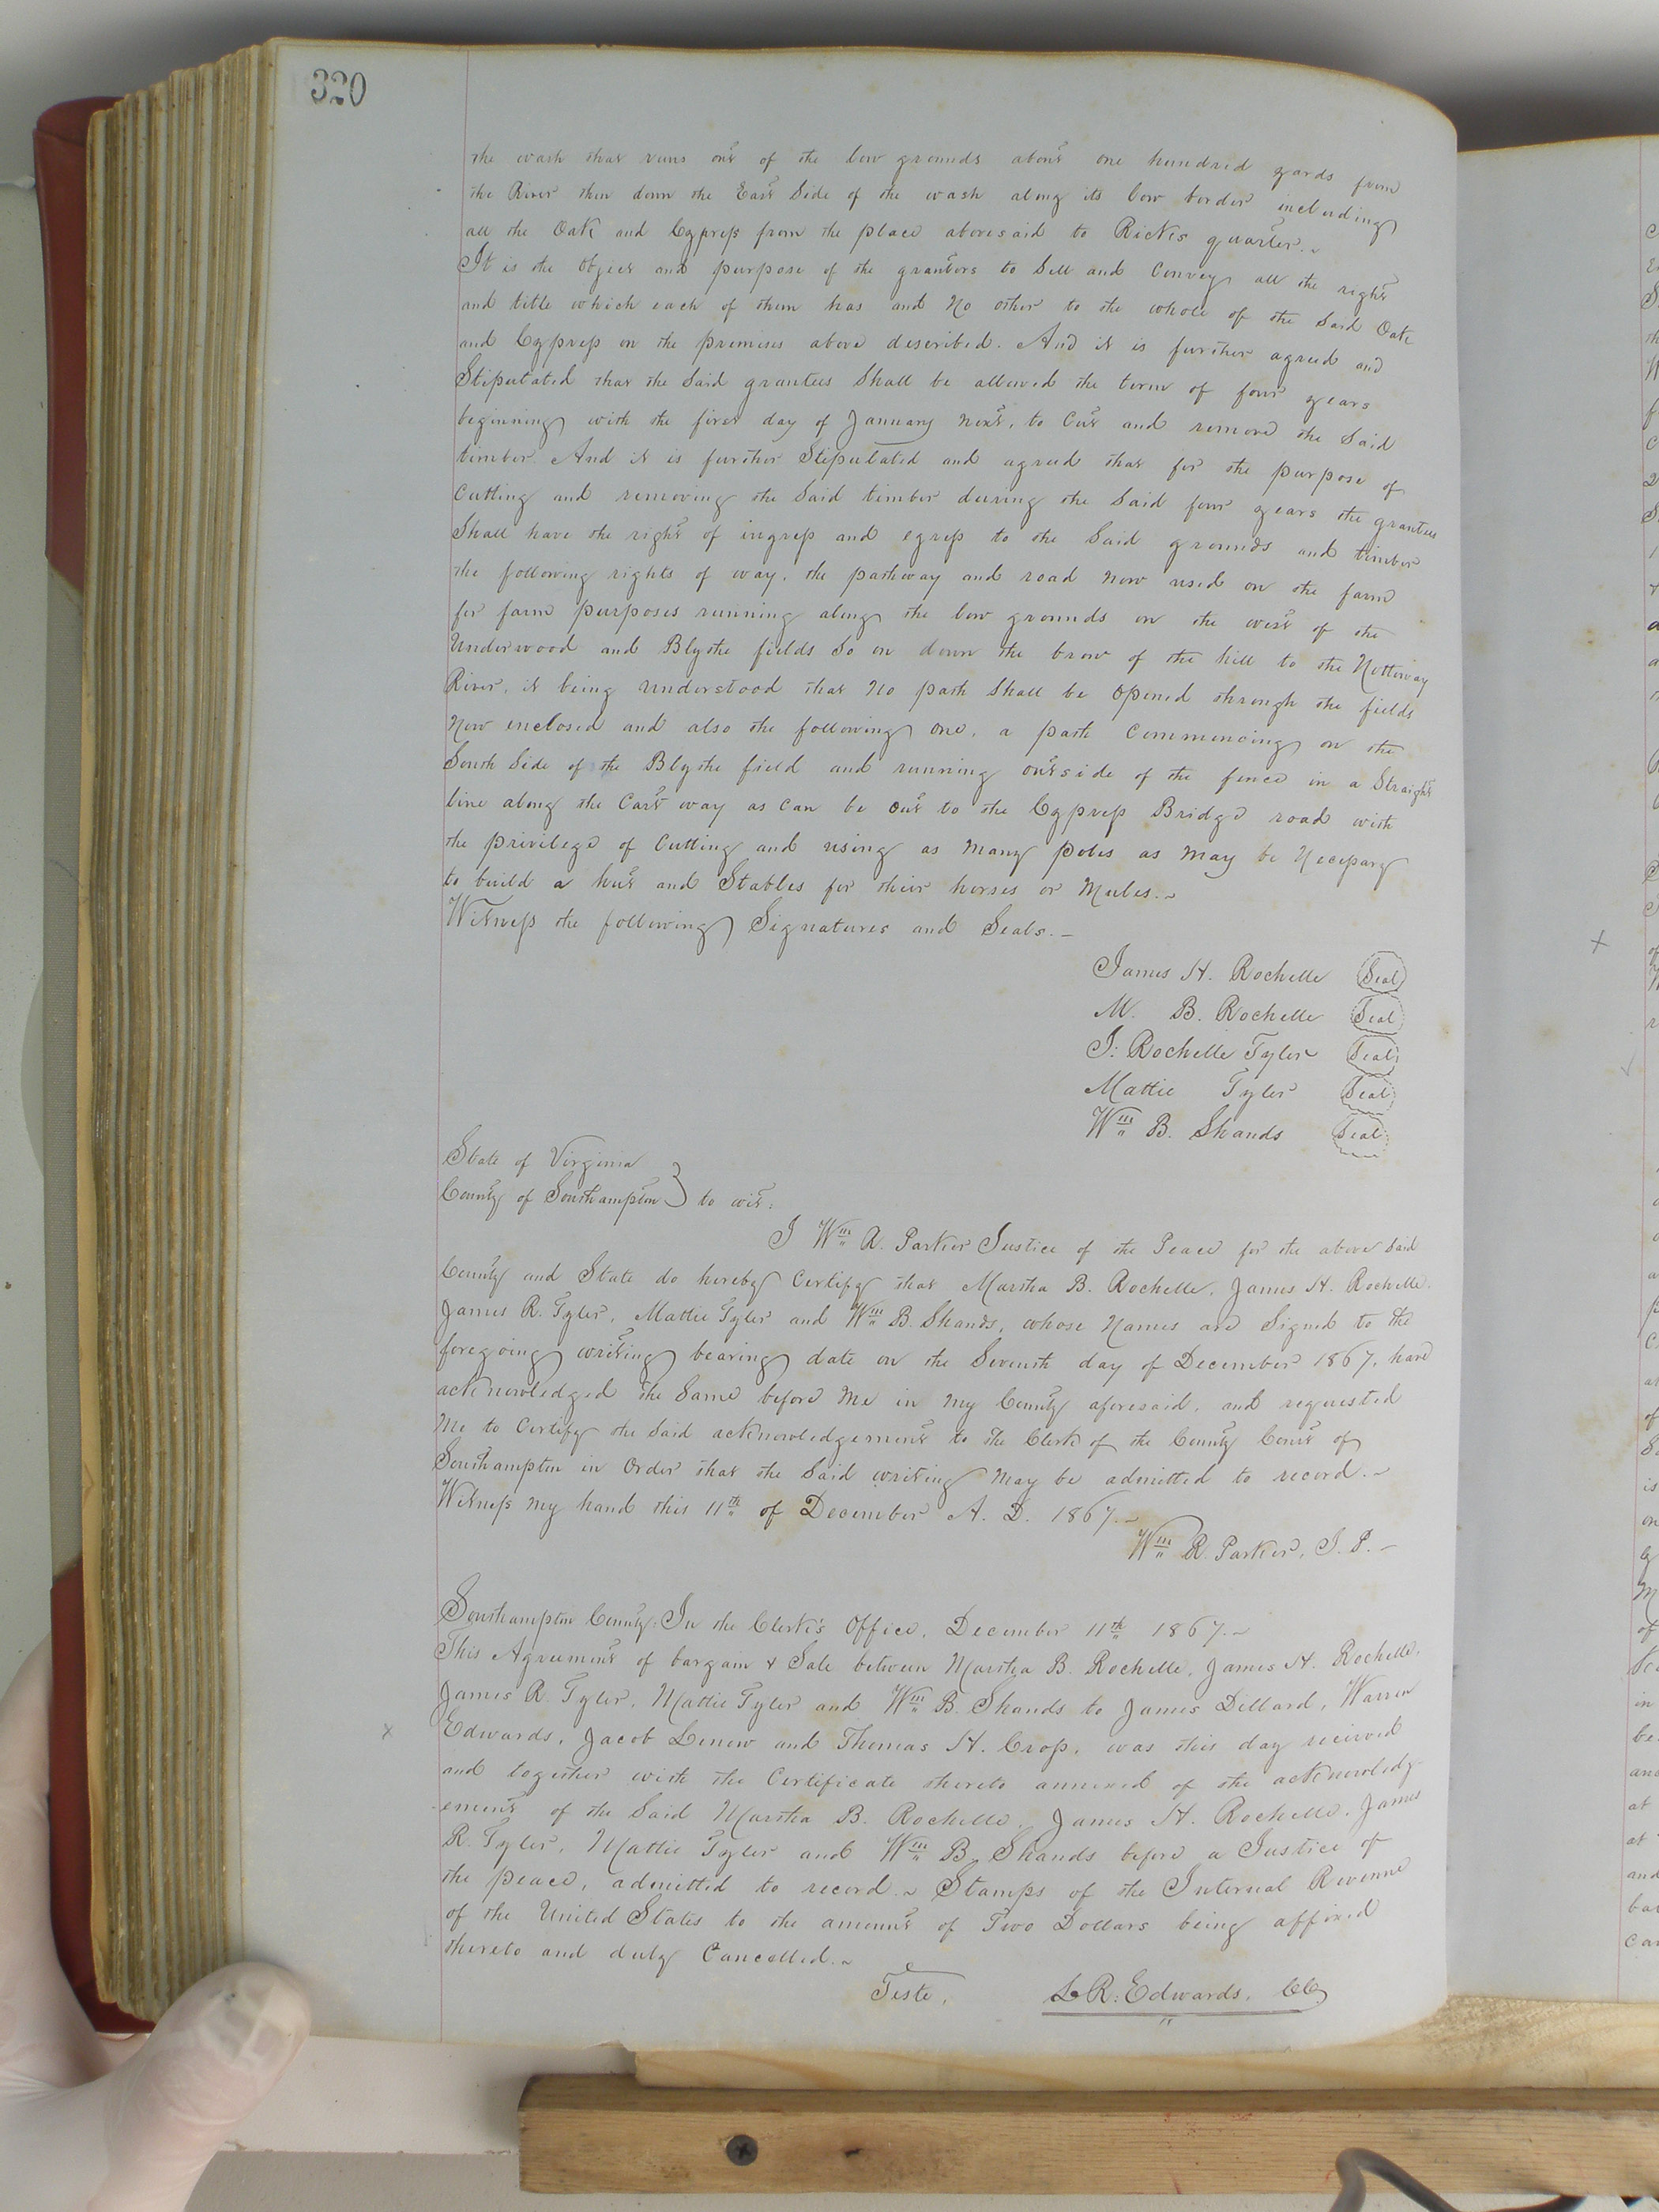 320
the wash that runs out of the low grounds about one hundred yards from
the River then down the East Side of the wash along its low border including
all the Oak and Cypress from the place aforesaid to Ricks quarter.~
It is the Object and purpose of the grantors to Sell and Convey all the right
and title which each of them has and No other to the whole of the Said Oak
and Cypress on the premises above described. And it is further agreed and
Stipulated that the Said grantees Shall be allowed the term of four years
beginning with the first day of January next, to Cut and remove the Said
timber. And it is further Stipulated and agreed that for the purpose of
Cutting and removing the Said timber during the Said four years the grantees
Shall have the right of ingress and egress to the Said grounds and timber
the following rights of way, the pathway and road Now used on the farm
for farm purposes running along the low grounds on the west of the
Underwood and Blythe fields So on down the brow of the hill to the Nottoway
River, it being understood that No path Shall be Opened through the fields
Now enclosed and also the following one, a path Commencing on the
South Side of the Blythe field and running outside of the fence in a Straight
line along the Cart way as Can be out to the Cypress Bridge road with
the privilege of Cutting and using as Many poles as May be Necessary
to build a hut and Stables for their horses or Mules.~
Witness the following Signatures and Seals.—
James H. Rochelle Seal
M. B. Rochelle Seal
J: Rochelle Tyler Seal
Mattie Tyler Seal
Wm B. Shands Seal
State of Virginia
County of Southampton } to wit:
I Wm R. Parker Justice of the Peace for the above Said
County and State do hereby Certify that Martha B. Rochelle, James H. Rochelle,
James R. Tyler, Mattie Tyler and Wm B. Shands, whose Names are Signed to the
foregoing writing bearing date on the Seventh day of December 1867, have
acknowledged the Same before Me in My County aforesaid, and requested
Me to Certify the Said acknowledgement to the Clerk of the County Court of
Southampton in Order that the Said writing May be admitted to record.~
Witness My hand this 11th of December A. D. 1867.~
Wm R. Parker, J. P.—
Southampton County: In the Clerk's Office, December 11th 1867.~
This Agreement of bargain & Sale between Martha B. Rochelle, James H. Rochelle,
James R. Tyler, Mattie Tyler and Wm B. Shands to James Dillard, Warren
x Edwards, Jacob Lenow and Thomas H. Cross, was this day received
and together with the Certificate thereto annexed of the acknowledg-
-ement of the Said Martha B. Rochelle, James H. Rochelle, James
R. Tyler, Mattie Tyler and Wm B. Shands before a Justice of
the peace, admitted to record.~ Stamps of the Internal Revenue
of the United States to the amount of Two Dollars being affixed
thereto and duly Cancelled.~
Teste, L. R. Edwards, CC